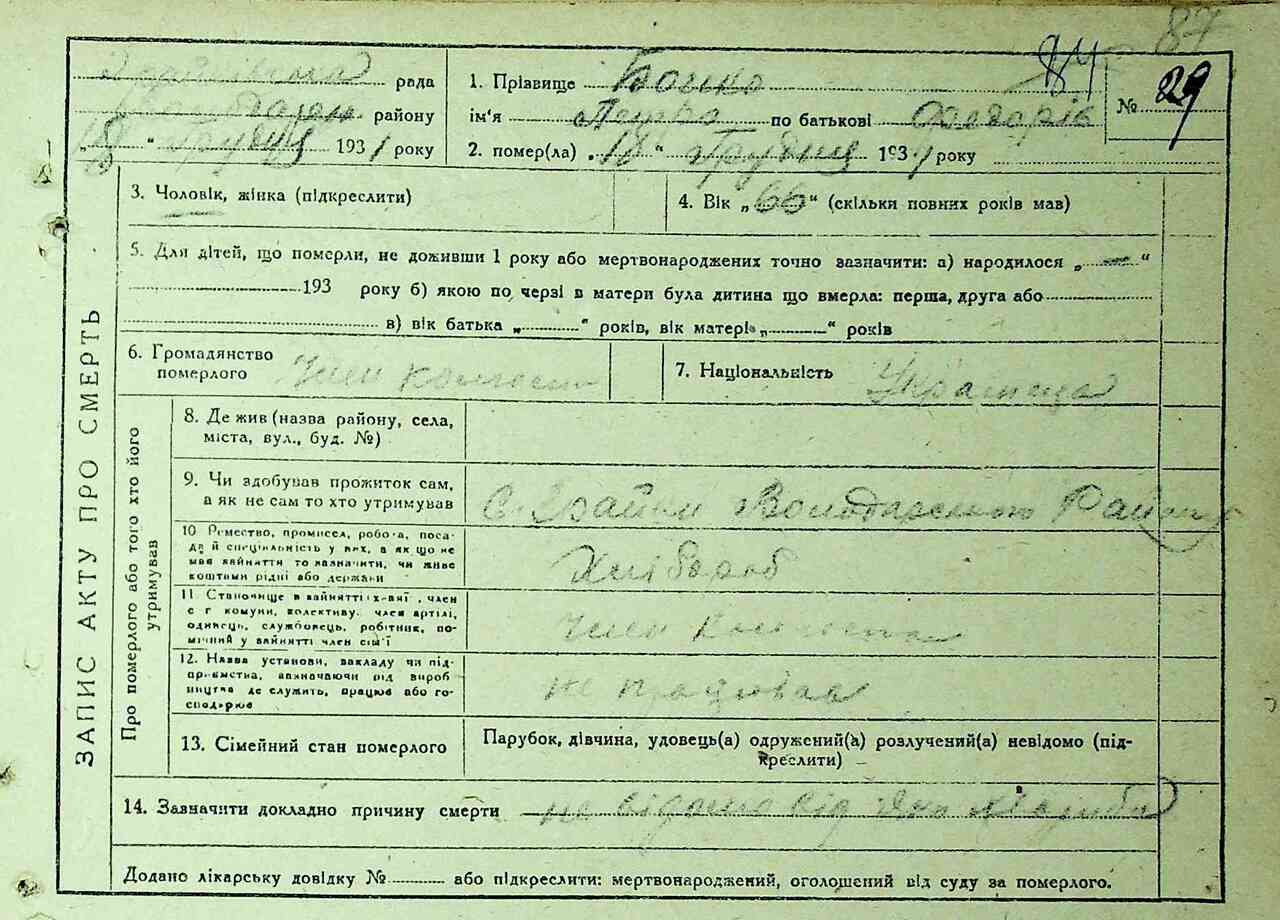 84
87
рада
району
18 " Грудня 1931 року
1. Прізвище Бойко
ім'я Петро по батькові
2. помер(ла) „18 " Грудня 1931 року
№ 29
ЗАПИС АКТУ ПРО СМЕРТЬ
3. Чоловік, жінка (підкреслити)
4. Вік „66" (скільки повних років мав)
5. Для дітей, що померли, не доживши 1 року або мертвонароджених точно зазначити: а) народилося „ — "
193 року б) якою по черзі в матери була дитина що вмерла: перша, друга або
в) вік батька „ " років, вік матері „ " років
6. Громадянство
померлого Член колгоспу
7. Національність Українець
Про померлого або того хто його
утримував
8. Де жив (назва району, села,
міста, вул., буд. №)
9. Чи здобував прожиток сам,
а як не сам то хто утримував
С. Володарського Району
10 Ремество, промисел, робота, поса-
да й спеціяльність у них, а як що не
мав зайняття то зазначити, чи живе
коштами рідні або держави
Хлібороб
11 Становище в зайнятті: х-вяї, член
с г комуни, колективу, член артілі,
одинець, службовець, робітник, по-
мічний у зайнятті член сім'ї
Член колгоспа
12. Назва установи, закладу чи під-
приємства, зазначаючи рід вироб
ництва де служить, працює або го-
сподарює
не працював
13. Сімейний стан померлого
Парубок, дівчина, удовець(а) одружений(а) розлучений(а) невідомо (під-
креслити)
14. Зазначити докладно причину смерти не відомо від
Додано лікарську довідку № або підкреслити: мертвонароджений, оголошений від суду за померлого.